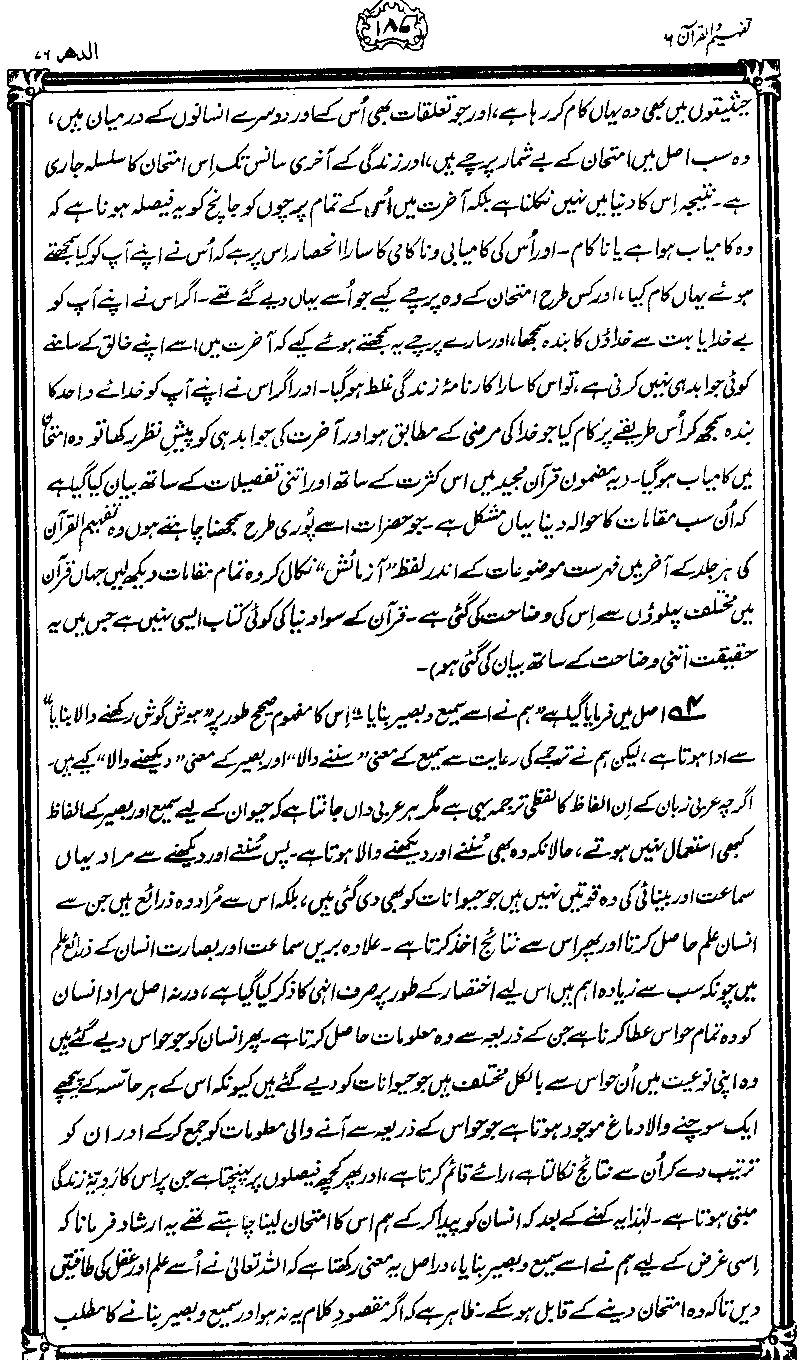 تفہیم القرآن ۶
۱۸۶
الدھر ۷۶
حیثیتوں میں بھی وہ یہاں کام کر رہا ہے، اور جو تعلقات بھی اُس کے اور دوسرے انسانوں کے درمیان ہیں،
وہ سب اصل میں امتحان کے بے شمار پرچے ہیں، اور زندگی کے آخری سانس تک اِس امتحان کا سلسلہ جاری
ہے۔ نتیجہ اِس کا دنیا میں نہیں نکلنا ہے بلکہ آخرت میں اُس کے تمام پرچوں کو جانچ کر یہ فیصلہ ہونا ہے کہ
وہ کامیاب ہوا ہے یا ناکام۔ اور اُس کی کامیابی و ناکامی کا سارا انحصار اِس پر ہے کہ اُس نے اپنے آپ کو کیا سمجھتے
ہوئے یہاں کام کیا، اور کس طرح امتحان کے وہ پرچے کیے جو اُسے یہاں دیے گئے تھے۔ اگر اس نے اپنے آپ کو
بے خدا یا بہت سے خداؤں کا بندہ سمجھا، اور سارے پرچے یہ سمجھتے ہوئے کیے کہ آخرت میں اسے اپنے خالق کے سامنے
کوئی جوابدہی نہیں کرنی ہے، تو اس کا سارا کارنامۂ زندگی غلط ہو گیا۔ اور اگر اس نے اپنے آپ کو خدائے واحد کا
بندہ سمجھ کر اُس طریقے پر کام کیا جو خدا کی مرضی کے مطابق ہو اور آخرت کی جوابدہی کو پیشِ نظر رکھا تو وہ امتحان
میں کامیاب ہو گیا۔ (یہ مضمون قرآن مجید میں اس کثرت کے ساتھ اور اتنی تفصیلات کے ساتھ بیان کیا گیا ہے
کہ اُن سب مقامات کا حوالہ دینا یہاں مشکل ہے۔ جو حضرات اسے پوری طرح سمجھنا چاہتے ہوں وہ تفہیم القرآن
کی ہر جلد کے آخر میں فہرست موضوعات کے اندر لفظ "آزمائش" نکال کر وہ تمام مقامات دیکھ لیں جہاں قرآن
میں مختلف پہلوؤں سے اِس کی وضاحت کی گئی ہے۔ قرآن کے سوا دنیا کی کوئی کتاب ایسی نہیں ہے جس میں یہ
حقیقت اتنی وضاحت کے ساتھ بیان کی گئی ہو)۔
۴ اصل میں فرمایا گیا ہے "ہم نے اسے سمیع و بصیر بنایا"۔ اِس کا مفہوم صحیح طور پر "ہوش گوش رکھنے والا بنایا"
سے ادا ہوتا ہے، لیکن ہم نے ترجمے کی رعایت سے سمیع کے معنی "سننے والا" اور بصیر کے معنی "دیکھنے والا" کیے ہیں۔
اگرچہ عربی زبان کے اِن الفاظ کا لفظی ترجمہ یہی ہے مگر ہر عربی داں جانتا ہے کہ حیوان کے لیے سمیع اور بصیر کے الفاظ
کبھی استعمال نہیں ہوتے، حالانکہ وہ بھی سُننے اور دیکھنے والا ہوتا ہے۔ پس سُننے اور دیکھنے سے مراد یہاں
سماعت اور بینائی کی وہ قوتیں نہیں ہیں جو حیوانات کو بھی دی گئی ہیں، بلکہ اس سے مُراد وہ ذرائع ہیں جن سے
انسان علم حاصل کرتا اور پھر اس سے نتائج اخذ کرتا ہے۔ علاوہ بریں سماعت اور بصارت انسان کے ذرائع علم
میں چونکہ سب سے زیادہ اہم ہیں اس لیے اختصار کے طور پر صرف انہی کا ذکر کیا گیا ہے، ورنہ اصل مراد انسان
کو وہ تمام حواس عطا کرنا ہے جن کے ذریعہ سے وہ معلومات حاصل کرتا ہے۔ پھر انسان کو جو حواس دیے گئے ہیں
وہ اپنی نوعیت میں اُن حواس سے بالکل مختلف ہیں جو حیوانات کو دیے گئے ہیں کیونکہ اس کے ہر حاسّہ کے پیچھے
ایک سوچنے والا دماغ موجود ہوتا ہے جو حواس کے ذریعہ سے آنے والی معلومات کو جمع کر کے اور ان کو
ترتیب دے کر اُن سے نتائج نکالتا ہے، رائے قائم کرتا ہے، اور پھر کچھ فیصلوں پر پہنچتا ہے جن پر اس کا رویۂ زندگی
مبنی ہوتا ہے۔ لہٰذا یہ کہنے کے بعد کہ انسان کو پیدا کر کے ہم اس کا امتحان لینا چاہتے تھے یہ ارشاد فرمانا کہ
اِسی غرض کے لیے ہم نے اسے سمیع و بصیر بنایا، دراصل یہ معنی رکھتا ہے کہ اللہ تعالیٰ نے اُسے علم اور عقل کی طاقتیں
دیں تاکہ وہ امتحان دینے کے قابل ہو سکے۔ ظاہر ہے کہ اگر مقصودِ کلام یہ نہ ہو اور سمیع و بصیر بنانے کا مطلب